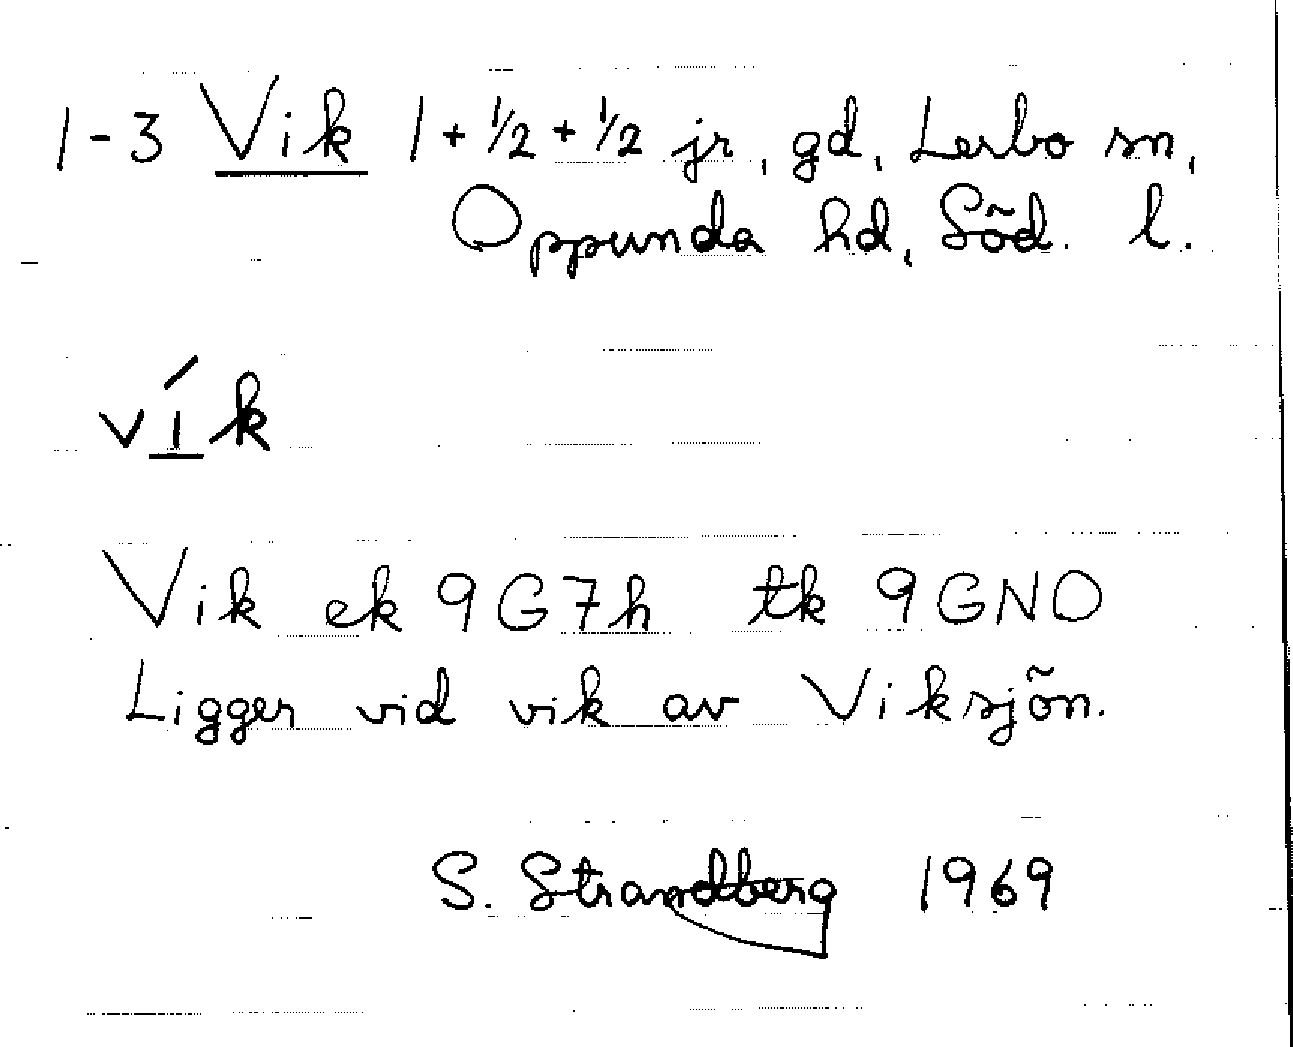 1-3 Vik 1 + 1/2 + 1/2 jr, gd, Lerbo sn,
Oppunda hd, Söd. l.
vík
Vik ek 9G7h tk 9GNO
Ligger vid vik av Viksjön.
S. Strandberg 1969